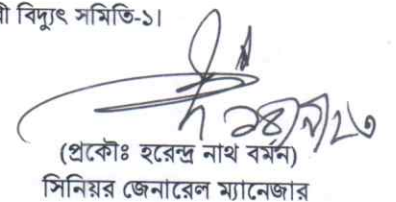 বিদ্যুৎ সমিতি-১।
(প্রকৌঃ হরেন্দ্র নাথ বর্মন)
সিনিয়র জেনারেল ম্যানেজার